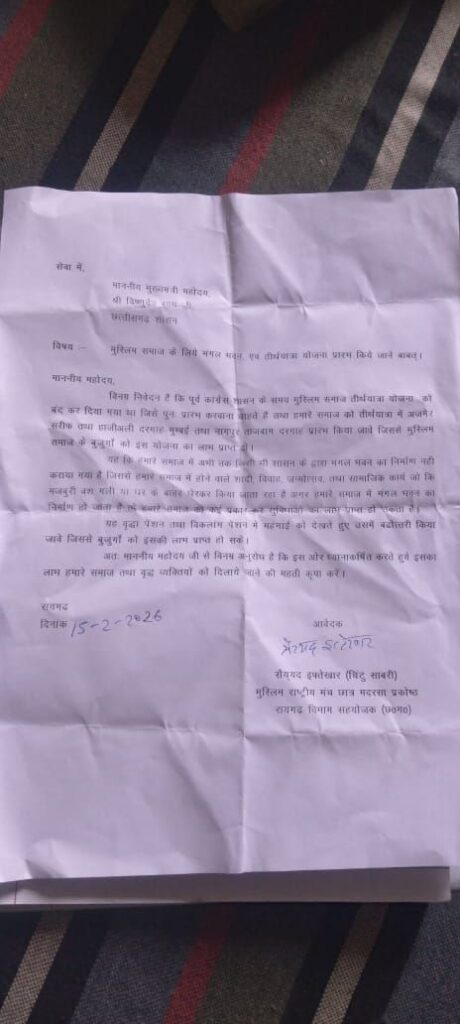 सेवा में,
माननीय मुख्यमंत्री महोदय,
श्री विष्णुदेव साय जी
छत्तीसगढ़ शासन
विषय :- मुस्लिम समाज के लिये मंगल भवन, एवं तीर्थयात्रा योजना प्रारंभ किये जाने बाबत्।
माननीय महोदय,
विनम्र निवेदन है कि पूर्व कांग्रेस शासन के समय मुस्लिम समाज तीर्थयात्रा योजना को
बंद कर दिया गया था जिसे पुनः प्रारंभ करवाना चाहते है तथा हमारे समाज को तीर्थयात्रा में अजमेर
सरीफ तथा हाजीअली दरगाह मुम्बई तथा नागपुर ताजबाग दरगाह प्रारंभ किया जावे जिससे मुस्लिम
समाज के बुजुर्गो को इस योजना का लाभ प्राप्त हो।
यह कि हमारे समाज में अभी तक किसी भी शासन के द्वारा मंगल भवन का निर्माण नही
कराया गया है जिससे हमारे समाज में होने वाले शादी, विवाह, जन्मोत्सव, तथा सामाजिक कार्य जो कि
मजबुरी वश गली या घर के बाहर घेरकर किया जाता रहा है अगर हमारे समाज में मंगल भवन का
निर्माण हो जाता है तो हमारे समाज को कई प्रकार की सुविधाओं का लाभ प्राप्त हो सकता है।
यह वृद्धा पेंशन तथा विकलांग पेंशन में महंगाई को देखते हुए उसमें बढोत्तरी किया
जावे जिससे बुजुर्गो को इसकी लाभ प्राप्त हो सके।
अतः माननीय महोदय जी से विनम्र अनुरोध है कि इस ओर ध्यानाकर्षित करते हुये इसका
लाभ हमारे समाज तथा वृद्ध व्यक्तियों को दिलाये जाने की महती कृपा करें।
रायगढ़
दिनांक 15-2-2026
आवेदक
सैय्यद इफ्तेखार (चिंटु साबरी)
मुस्लिम राष्ट्रीय मंच छात्र मदरसा प्रकोष्ठ
रायगढ़ विभाग सहयोजक (छ०ग०)